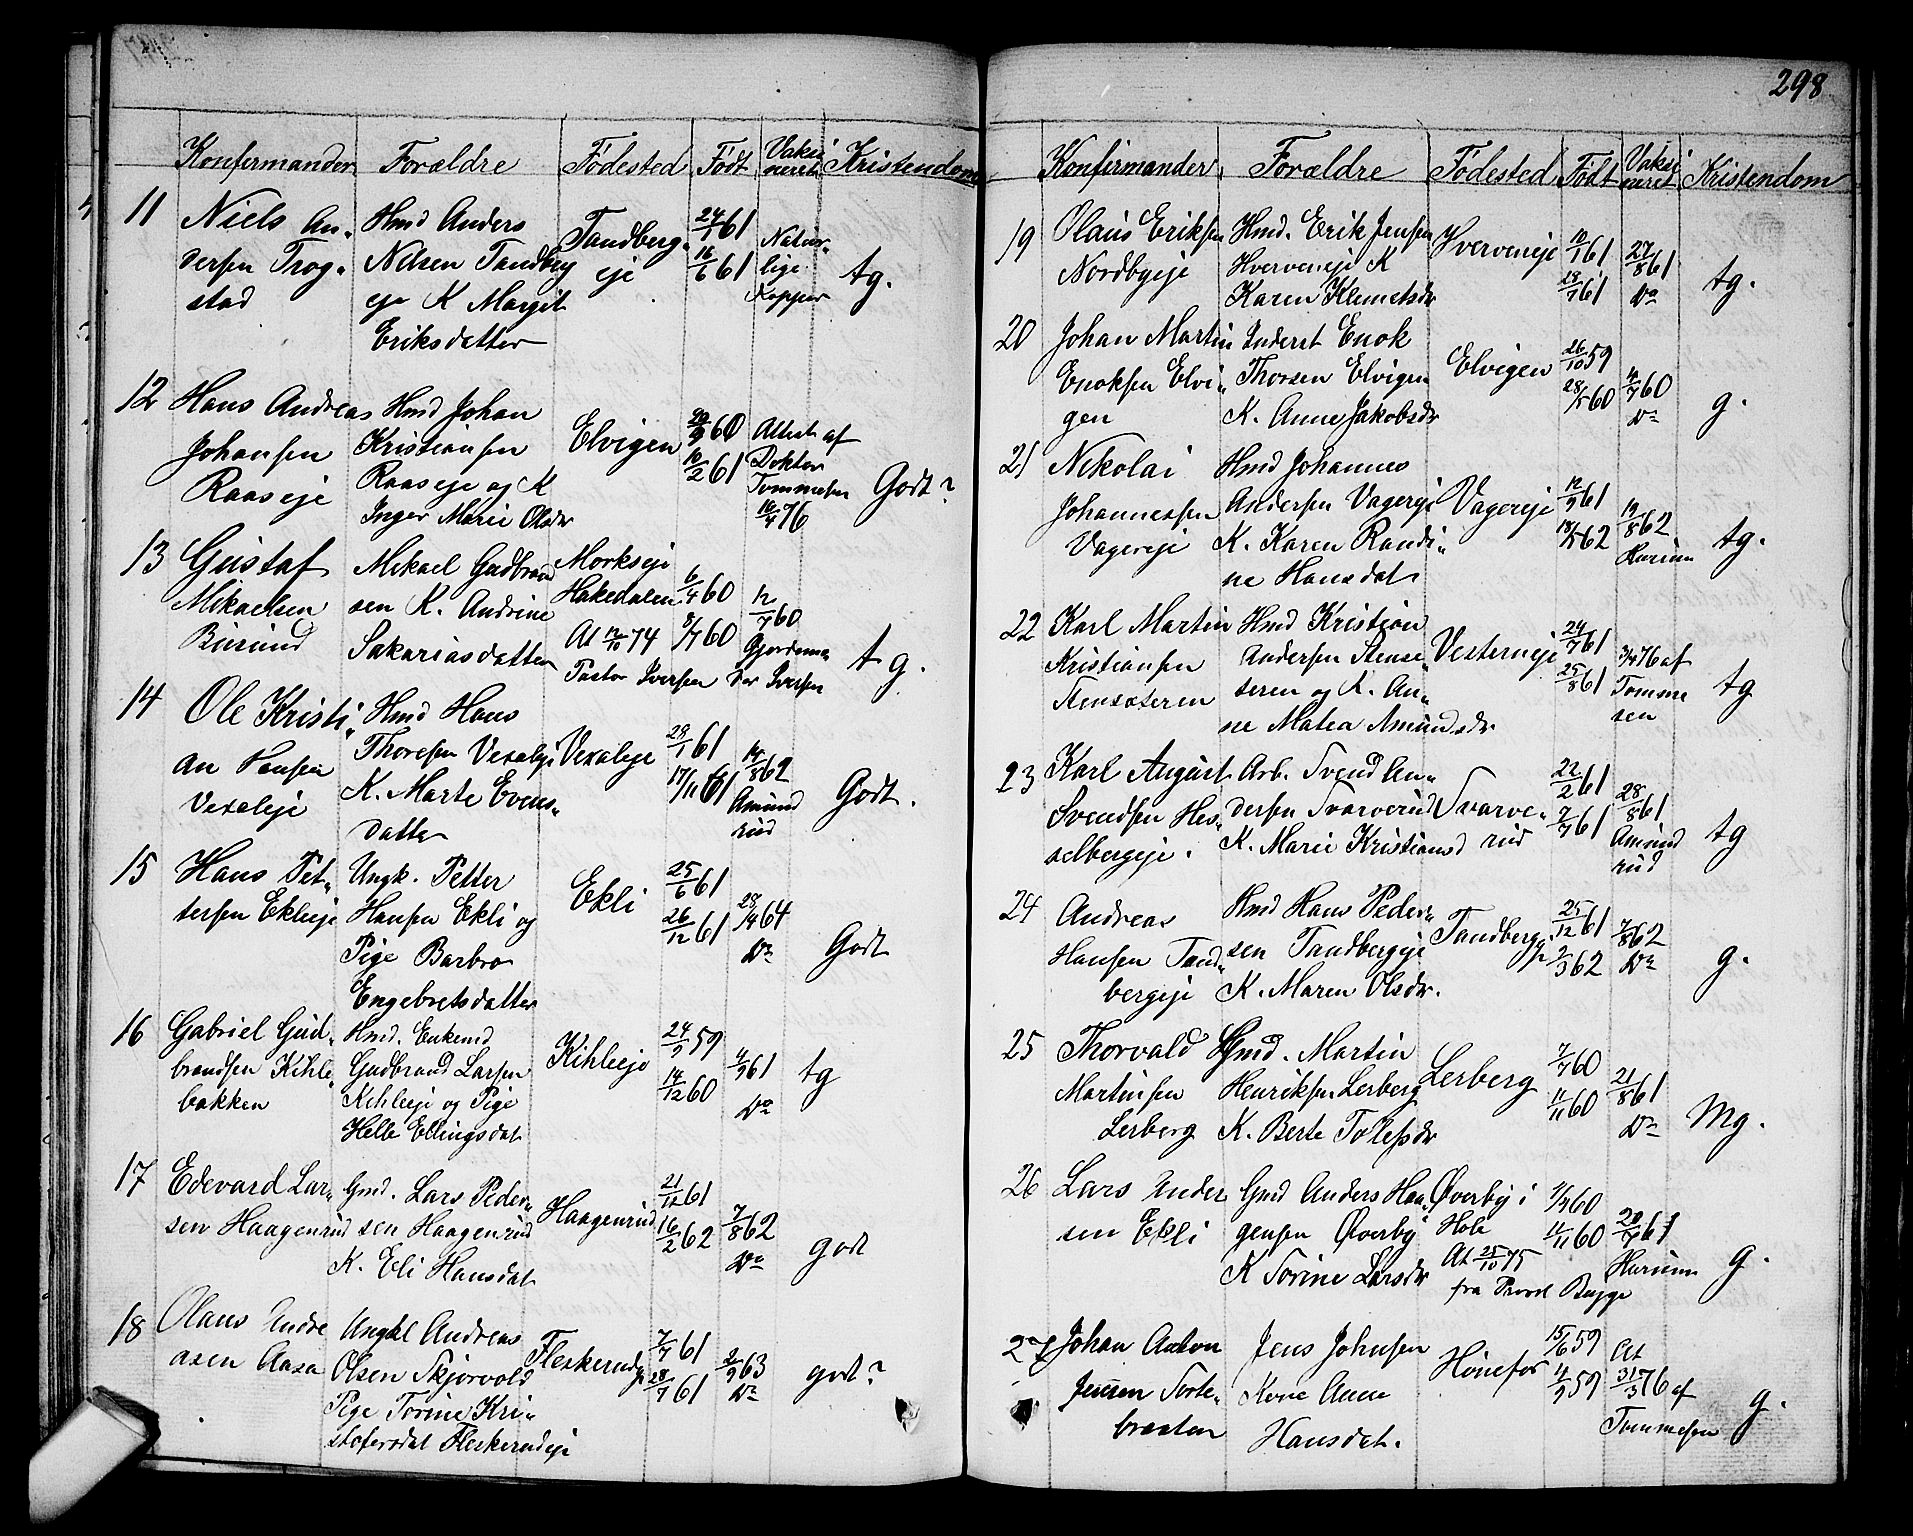 298
Konfirmander Forældre Fødested Født Vaksineret Kristendom
11 Niels Andersen Trogstad
Hmd Anders
Nilsen Tandberg
eje K Margit
Eriksdatter
Tandberg-
eje
24/1 61
16/6 61
Natur-
lige
Kopper
tg.
12 Hans Andreas
Johansen
Raaseje
Hmd Johan
Kristiansen
Raaseje og K
Inger Marie Olsdr
Elvigen
60
10/2 61
Attest af
Doktor
Tommesen
16/4 76
Godt?
13 Gustaf
Mikaelsen
Mikael Gudbrand
sen K. Andrine
Sakariasdatter
Morkseje
Hakedalen
At 74
Pastor Iversen
6/4 60
8/7 60
12/7 60
Iversen
tg.
14 Ole Kristi-
an Hansen
Vexaleje
Hmd Hans
Thoresen Vexaleje
K. Marte Evens-
datter
Vexaleje
28/1 61
17/11 61
14/8 62
Amund
rud
Godt.
15 Hans Pet-
tersen Eklieje
Ungk. Petter
Hansen Ekli og
Pige Barbro
Engebretsdatter
Ekli
25/6 61
26/12 61
28/4 64
Do
Godt
16 Gabriel Gud-
brandsen Kihle-
bakken
Hmd. Enkemd
Gudbrand Larsen
Kihleeje og Pige
Helle Ellingsdat
Kihleeje
24/9 59
14/12 60
61
Do
tg
17 Edevard Lar-
sen Haagenrud
Gmd. Lars Peder-
sen Haagenrud
K. Eli Hansdat
Haagenrud
21/12 61
16/2 62
7/8 62
Do
godt
18 Olaus Andre
asen Aasa
Ungkl Andreas
Olsen Skjørvold
Pige Torine Kri-
stofersdat Fleskerudeje
Fleskerudeje
7/7 61
28/7 61
2/9 63
Do
godt?
Konfirmander Forældre Fødested Født Vaksineret Kristendom
19 Olaus Eriksen
Nordbyeje
Hmd. Erik Jensen
Hverveneje K
Karen Klemetsdr
Hverveneje
61
18/7 61
27/8 61
Do
tg.
20 Johan Martin
Enoksen Elvi-
gen
Inderst Enok
Thorsen Elvigen
K. Anne Jakobsdr
Elvigen
26/10 59
28/5 60
4/7 60
Do
g.
21 Nikolai
Johannessen
Vagereje
Hmd Johannes
Andersen Vagereje
K. Karen Randi-
ne Hansdat
Vagereje
12/9 61
18/5 62
19/8 62
tg.
22 Karl Martin
Kristiansen
Stensæteren
Hmd Kristian
Andersen Stensæ-
teren og K. An-
ne Matea Amundsdr
Vesterneje
24/7 61
25/8 61
76 af
Tomme
sen
tg
23 Karl August
Svendsen Hes-
selbergeje.
Arb. Svend An-
dersen Svarverud
K. Marie Kristiansd
Svarve-
rud
22/2 61
7/7 61
28/8 61
Amund
rud
tg
24 Andreas
Hansen Tand-
bergeje
Hmd Hans Peder-
sen Tandbergeje
K. Maren Olsdr.
Tandbergeje
25/12 61
2/3 62
7/8 62
Do
g.
25 Thorvald
Martinsen
Lerberg
Gmd. Martin
Henriksen Lerberg
K. Berte Tolefsdr
Lerberg
7/7 60
11/11 60
21/8 61
Do
Mg.
26 Lars Ander
sen Ekli
Gmd Anders Haa-
gensen Øverby
K Torine Larsdr
Øverby i
Hole
At 25/10 75
fra Provst Bugge
60
11/11 60
61
g.
27 Johan Anton
Jensen Torte-
braaten
Jens Johnsen
Kone Anne
Hansdat.
Hønefos
15/6 59
4/9 59
At
31/3 76 af
Tommesen
g.